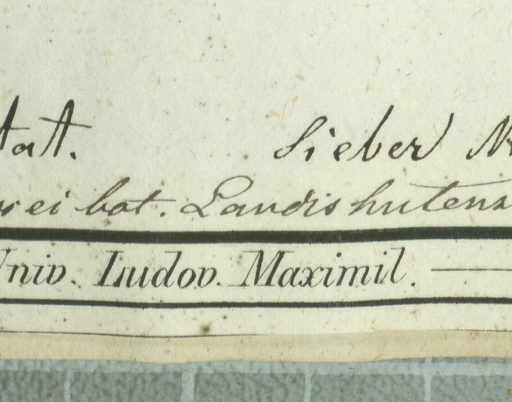 tat. Sieber
ei bot. Landishutens
Univ. Ludov. Maximil.